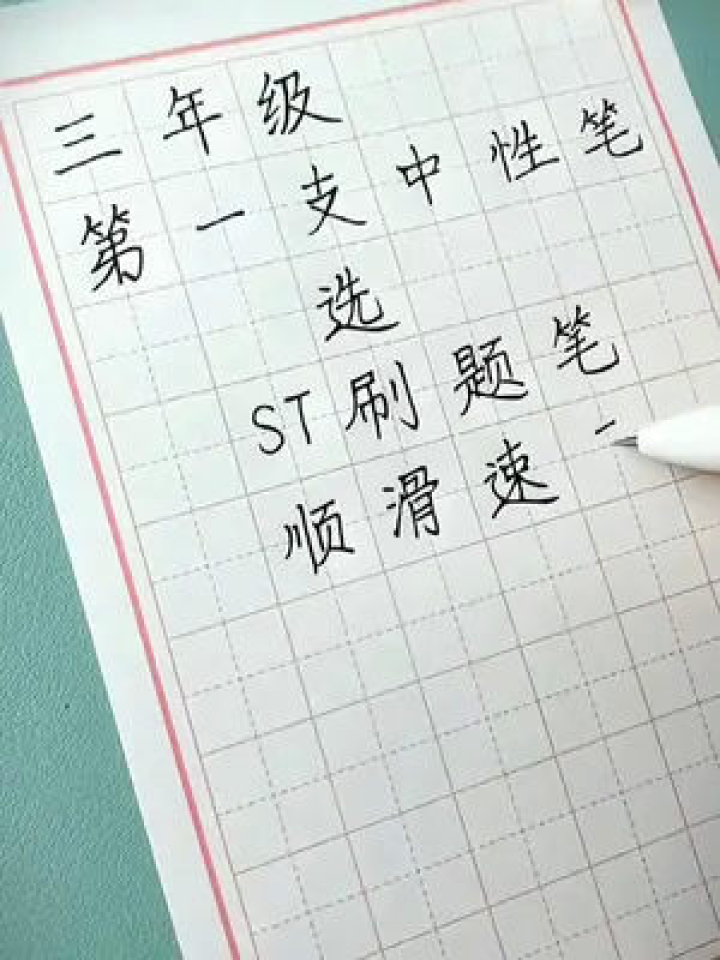 三年级
第一支中性笔
选
ST刷题笔
顺滑速